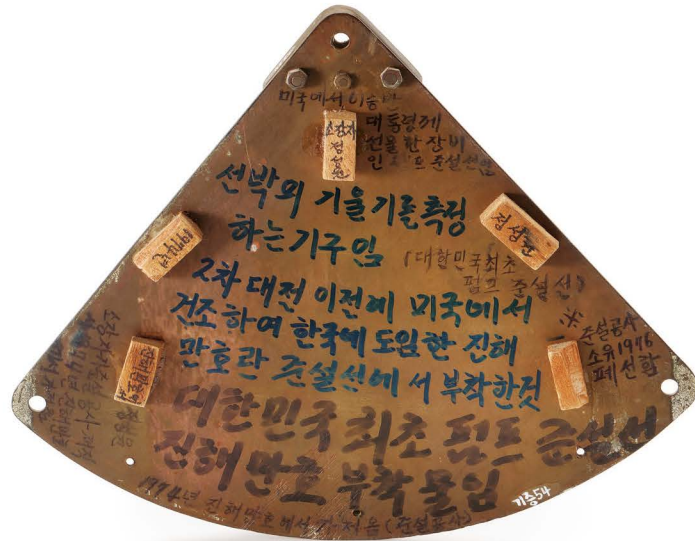 미국에서 이승만
대통령께
선물한 장비
인 펌프 준설선임
소장자
정성원
선박의 기울기를 측정
하는 기구임
정성원
1974년
(대한민국최초
펌프 준설선)
2차 대전 이전에 미국에서
건조하여 한국에 도입한 진해
만호란 준설선에서 부착한것
※
준설공사
소유 1976
폐선함
대한민국 최초 펌프 준설선
진해만호 부착물임
1974년 진해만호에서 가저옴 (준설공사)
기증54